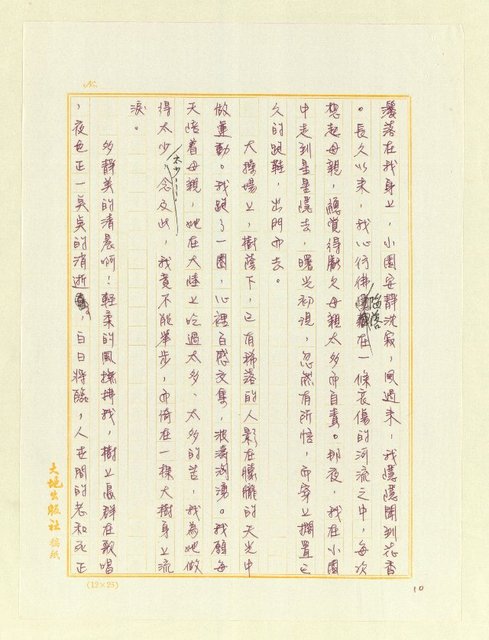 No.
濛落在我身上，小園安靜沈寂，風過來，我隱隱聞到花香
。長久以來，我心彷彿陷落在一條哀傷的河流之中，每次
想起母親，總覺得虧欠母親太多而自責。那夜，我在小園
中走到星星隱去，曙光初現，忽然有所悟，而穿上擱置已
久的跑鞋，出門而去。
大操場上，樹蔭下，已有稀落的人影在朦朧的天光中
做運動。我跑了一圈，心裡百感交集，波濤洶湧。我雖每
天陪着母親，她在大陸上吃過太多、太多的苦，我為她做
得太少、太少……念及此，我竟不能舉步，而倚在一棵大樹身上流
淚。
多靜美的清晨啊！輕柔的風撫拂我，樹上鳥群在歌唱
，夜色正一點點的消逝，白日將臨，人世間的老和死正
大地出版社稿紙
(12×25)
10